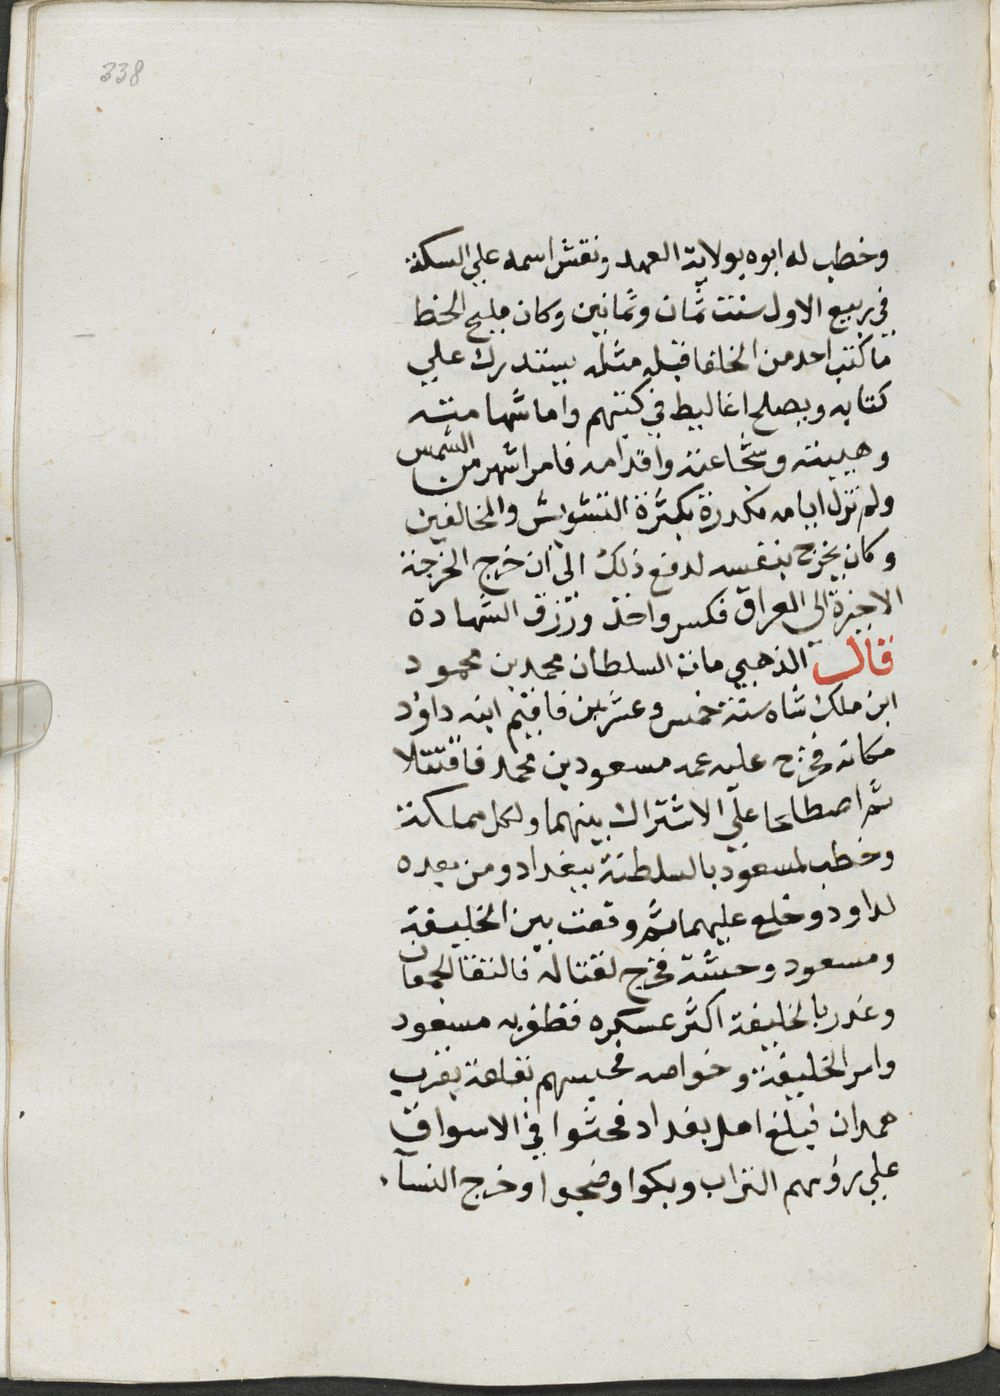 338
وخطب له ابوه بولاية العهد ونقش اسمه علي السكة
في ربيع الاول سنت ثمان وثمانين وكان مليح الخط
ما كتب احد من الخلفا قبله مثله يستدرك علي
كتابه ويصلح اغاليط في كتبهم واما شهامته
وهيبته وشجاعته واقدامه فامر اشهر من الشمس
ولم تزل ايامه مكدرة بكثرة التشويش والمخالفين
وكان يخرج بنفسه لدفع ذلك الى ان خرج الخرجة
الاخيرة الى العراق فكسر واخذ ورزق الشهادة
قال الذهبي مات السلطان محمد بن محمود
ابن ملك شاه سنة خمس وعشرين فاقيم ابنه داؤد
مكانه فخرج عليه عمه مسعود بن محمد فاقتتلا
ثم اصطلحا علي الاشتراك بينهما ولكل مملكة
وخطب لمسعود بالسلطنة ببغداد ومن بعده
لداود وخلع عليهما ثم وقعت بين الخليفة
ومسعود وحشة فخرج لقتاله فالتقا الجمعان
وغدر بالخليفة اكثر عسكره فظفر به مسعود
واسر الخليفة وخواصه فحبسهم بقلعة بقرب
همدان فبلغ اهل بغداد فحثوا في الاسواق
علي رؤسهم التراب وبكوا وضجوا وخرج النسآء